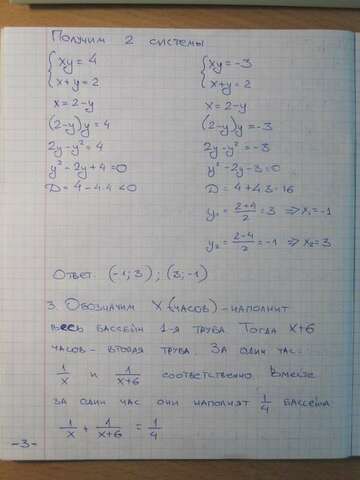 Получим 2 системы
{xy = 4 {xy = -3
x+y = 2 x+y = 2
x = 2-y x = 2-y
(2-y)y = 4 (2-y)y = -3
2y-y² = 4 2y-y² = -3
y²-2y+4=0 y²-2y-3=0
D = 4-4·4<0 D = 4+4·3=16
y₁ = (2+4)/2 = 3 ⇒ x₁=-1
y₂ = (2-4)/2 = -1 ⇒ x₂=3
Ответ. (-1; 3); (3; -1)
3. Обозначим x (часов) - наполнит
весь бассейн 1-я труба. Тогда x+6
часов - вторая труба. За один час:
1/x и 1/(x+6) соответственно. Вместе
за один час они наполнят 1/4 бассейна
1/x + 1/(x+6) = 1/4
-3-